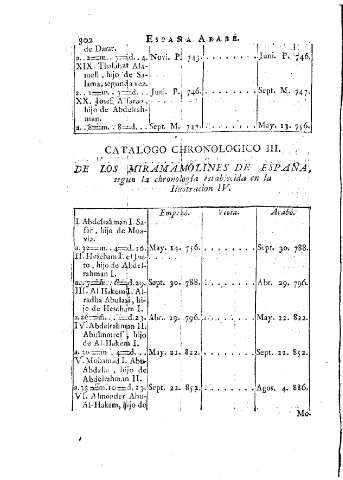 302 ESPAÑA ARABE.
de Darar.
a. 2=m. 7=d. 4. Novi. P. 743. Juni. P. 746.
XIX. Tholabat Ala-
meli, hijo de Sa-
lama, segunda vez.
Juni. P. 746. Sept. M. 747.
XX. Josef Alfarao,
hijo de Abdelrah-
man.
a. 8=m. 8=d. Sept. M. 747. May. 13. 756.
CATALOGO CHRONOLOGICO III.
DE LOS MIRAMAMOLINES DE ESPAÑA,
segun la chronologia establecida en la
Ilustracion IV.
Empezó. Acabó.
I. Abdelrahman I. Sa-
far, hijo de Moa-
via.
a. 32=m. 4=d. 16. May. 14. 756. Sept. 30. 788.
II. Hescham I. el Jus-
to, hijo de Abdel-
rahman I.
a. 7=m. 6=d. 29. Sept. 30. 788. Abr. 29. 796.
III. Al Hakem I. Al-
radha Abulasi, hi-
jo de Hescham I.
a. 26=m. =d. 23. Abr. 29. 796. May. 22. 822.
IV. Abdelrahman II.
Abulmotref, hijo
de Al-Hakem I.
a. 30=m. 4=d. May. 22. 822. Sept. 22. 852.
V. Mohamad I. Abu-
Abdalla, hijo de
Abdelrahman II.
a. 33=m. 10=d. 13. Sept. 22. 852. Agos. 4. 886.
VI. Almonder Abu-
Al-Hakem, hijo de
Mo-